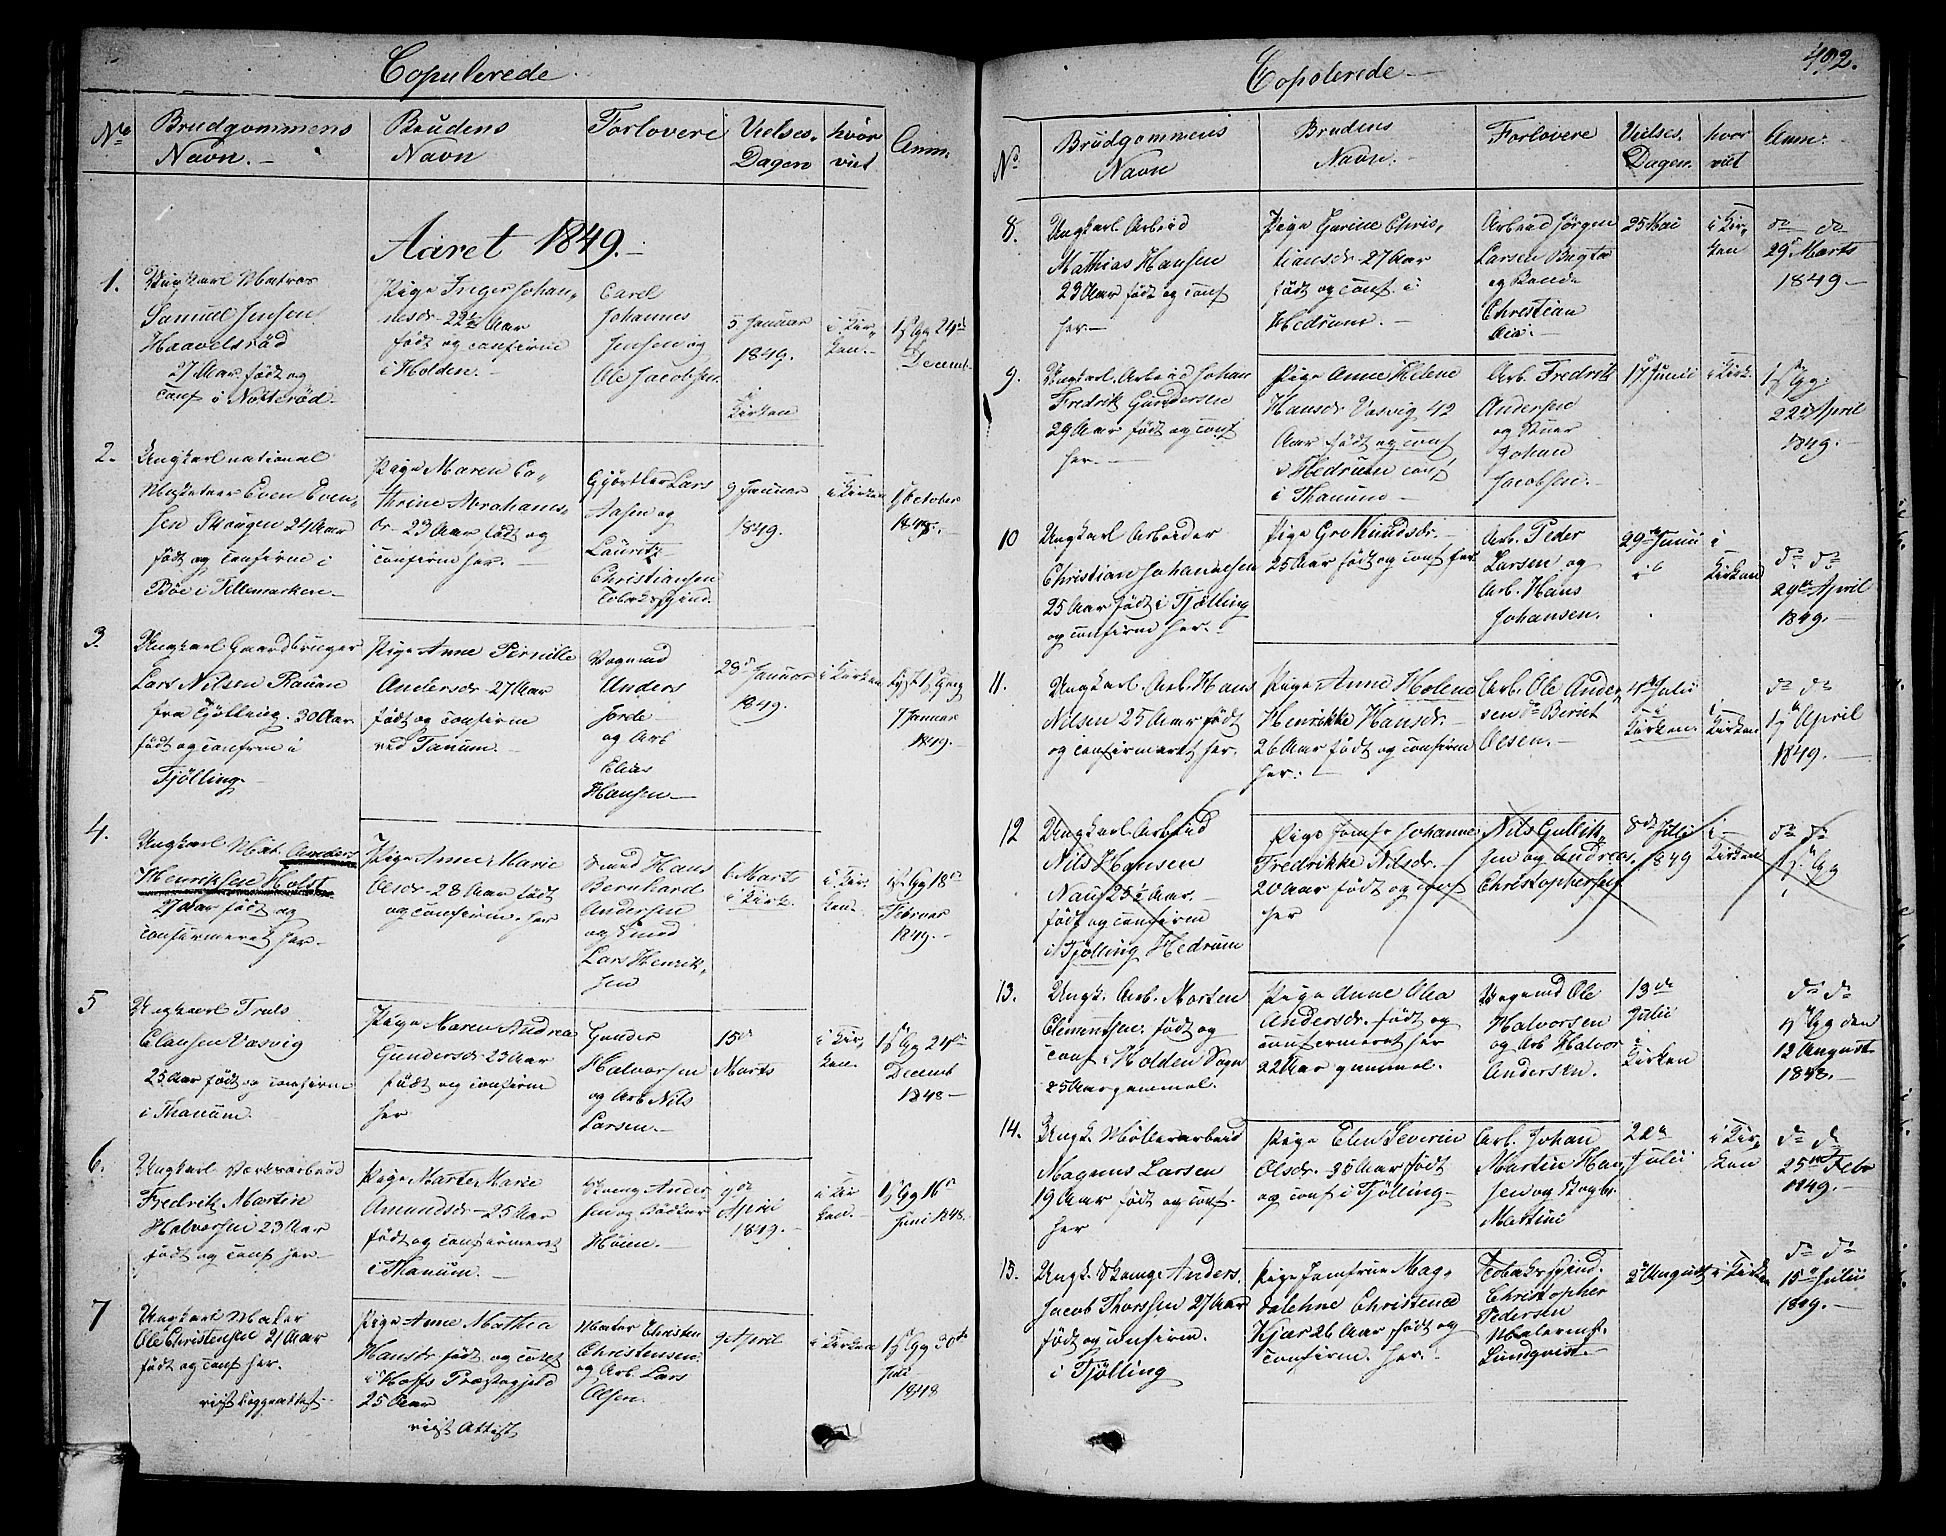 Copulerede
No
Brudgommens
Navn.
Brudens
Navn
Forlovere
Vielses-
Dagen
hvor
viet
Anm:
Aaret 1849.
1.
Ungkarl Matros
Samuel Jensen
Haavelsröd
27 Aar født og
Conf i Nötteröd
Pige Inger Johan-
nesdr 22½ Aar
født og confirm
i Holden.
Carel
Johannes
Jensen og
Ole Jacobsen
5 Januar
1849.
i
Kirken
i Kir-
ken.
1st Gg 24de
Decemb.
2.
Ungkarl national
Even Even-
sen Skougen 24 Aar
født og confirm i
Böe i Tillemarken
Pige Maren Ca-
thrine Abrahams-
dr 23 Aar født og
confirm her.
Gjörtler Lars
Aasen og
Lauritz
Christiansen
Tobaksspind.
9 Januar
1849.
i Kirken
October
1848.
3.
Ungkarl Gaardbruger
Lars Nilsen Rauan
fra Tjölling. 30 Aar
født og confirm i
Tjölling
Pige Anne Pernille
Andersdr 27 Aar
født og confirm
ved Tanum.
Vognmd
Anders
Jorde
og Arb
Elias
Hansen
28de Januar
1849.
i Kirken
7 Januar
1849.
4.
Ungkarl Mat. Anders
Henriksen Holst
27 Aar født og
confirmeret her
Pige Anne Marie
Olsdr 28 Aar født
og confirm. her
Smed Hans
Bernhard
Andersen
og Smed
Lars Henrik-
sen
6 Marts
i Kirk.
i Kir-
ken.
Gg 18de
Februar
1849.
5
Ungkarl Truls
Clausen Vasvig
25 Aar født og confirm
i Thanum.
Pige Maren Andrea
Gundersdr 23 Aar
født og confirm
her
Gunder
Halvorsen
og Arb Nils
Larsen.
15de
Marts
i Kir-
ken.
1st Gg 24de
Decemb
1848
6.
Ungkarl Værksarbeid
Fredrik Martin
Halvorsen 23 Aar
født og conf her
Pige Marte Marie
Amundsdr 25 Aar
født og confirmeret
i Thanum.
Ander-
sen og Bödker
Höien.
9de
April
1849.
i Kir
ken.
1st Gg 16de
Juni 1848.
7
Ungkarl Maler
Ole Christensen 21 Aar
født og conf her.
Pige Anne Mathea
Hansdr født og conf
i Hoffs Præstegjeld
25 Aar
vist Attest
Mator Christen
Christensen
og Arb. Lars
Olsen.
9 April
i Kirken
1st Gg 30te
Juli
1848
Copolerede
492.
No
Brudgommens
Navn
Brudens
Navn.
Forlovere
Vielses-
Dagen.
hvor
viet
Anm:
8.
Ungkarl Arbeid
Mathias Hansen
23 Aar født og conf
her
Pige Gurine Chris-
tiansdr 27 Aar
født og conf. i
Hedrum.
Arbeid Jörgen
Larsen
og Bonde
Christian
25 Mai
i Kir-
ken
do do
29de Marts
1849
9.
Ungkarl. Arbeid Johan
Fredrik Gundersen
29 Aar født og conf
her.
Pige Anne Helene
Hansdr Vasvig 42
Aar født og conf
i Hedrum conf
i Thanum
Arb. Fredrik
Andersen
og
Johan
Jacobsen.
17de Junii
i Kirk.
1st Gg.
22de April
1849.
10
Ungkarl Arbeider
Christian Johannesen
25 Aar født i Tjölling
og confirm her.
Pige Gro Knudsdr.
25 Aar født og conf her
Arb. Peder
Larsen og
Arb. Hans
Johansen.
29de Junii
i
Kirken
do do
29de April
1849.
11.
Ungkarl Arb. Hans
Nilsen 25 Aar født
og confirmeret her.
Pige Anne Helene
Henrikke Hansdr.
26 Aar født og confirm
her.
Arb. Ole Ander-
sen do Beriet
Olsen.
4de Julii
i
Kirken.
i
Kirken
do do
April
1849.
12
Ungkarl Arbeid
Nils Hansen
Naus 25½ Aar.
født og confirm
i Tjölling Hedrum
Pige Jomfr Johanne
Fredrikke Nilsdr.
20 Aar født og conf
her
Nils Gullik-
sen og Andreas
Christophersen
8de Julii
1849
i
Kirken
do do
Gg
13.
Ungk. Arb. Morten
Clemmetsen. født og
conf i Holden Sogn
25 Aar gammel.
Pige Anne Olea
Andersdr. født og
confirmeret her
22 Aar gammel.
Vognmd Ole
Halvorsen
og Arb Halvor
Andersen.
13de
Julii
i
Kirken
do do
Gg den
12 August
1848.
14.
Ungk. Möllerarbeid
Magnus Larsen
19 Aar født og conf.
her
Pige Elen Severin
Olsdr. 35 Aar født
og conf i Tjölling
Arb. Johan
Martin Han-
sen og
Martini
22de
Julii
i Kir-
ken
do do
25de Feb.
1849.
15.
Ungk. Anders.
Jacob Thorssen 27 Aar
født og confirm.
i Tjölling
Pige Jomfrue Mag-
dalehne Christence
Kjær 26 Aar født og
confirm. her.
Tobaksspind.
Christopher
Pedersen
Malermst.
Lundqvist.
2de August
i Kirken
do do
15de Julii
1849.